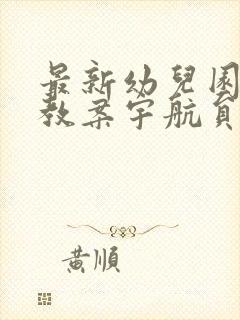 最新幼兒園
教案宇航員
黃順